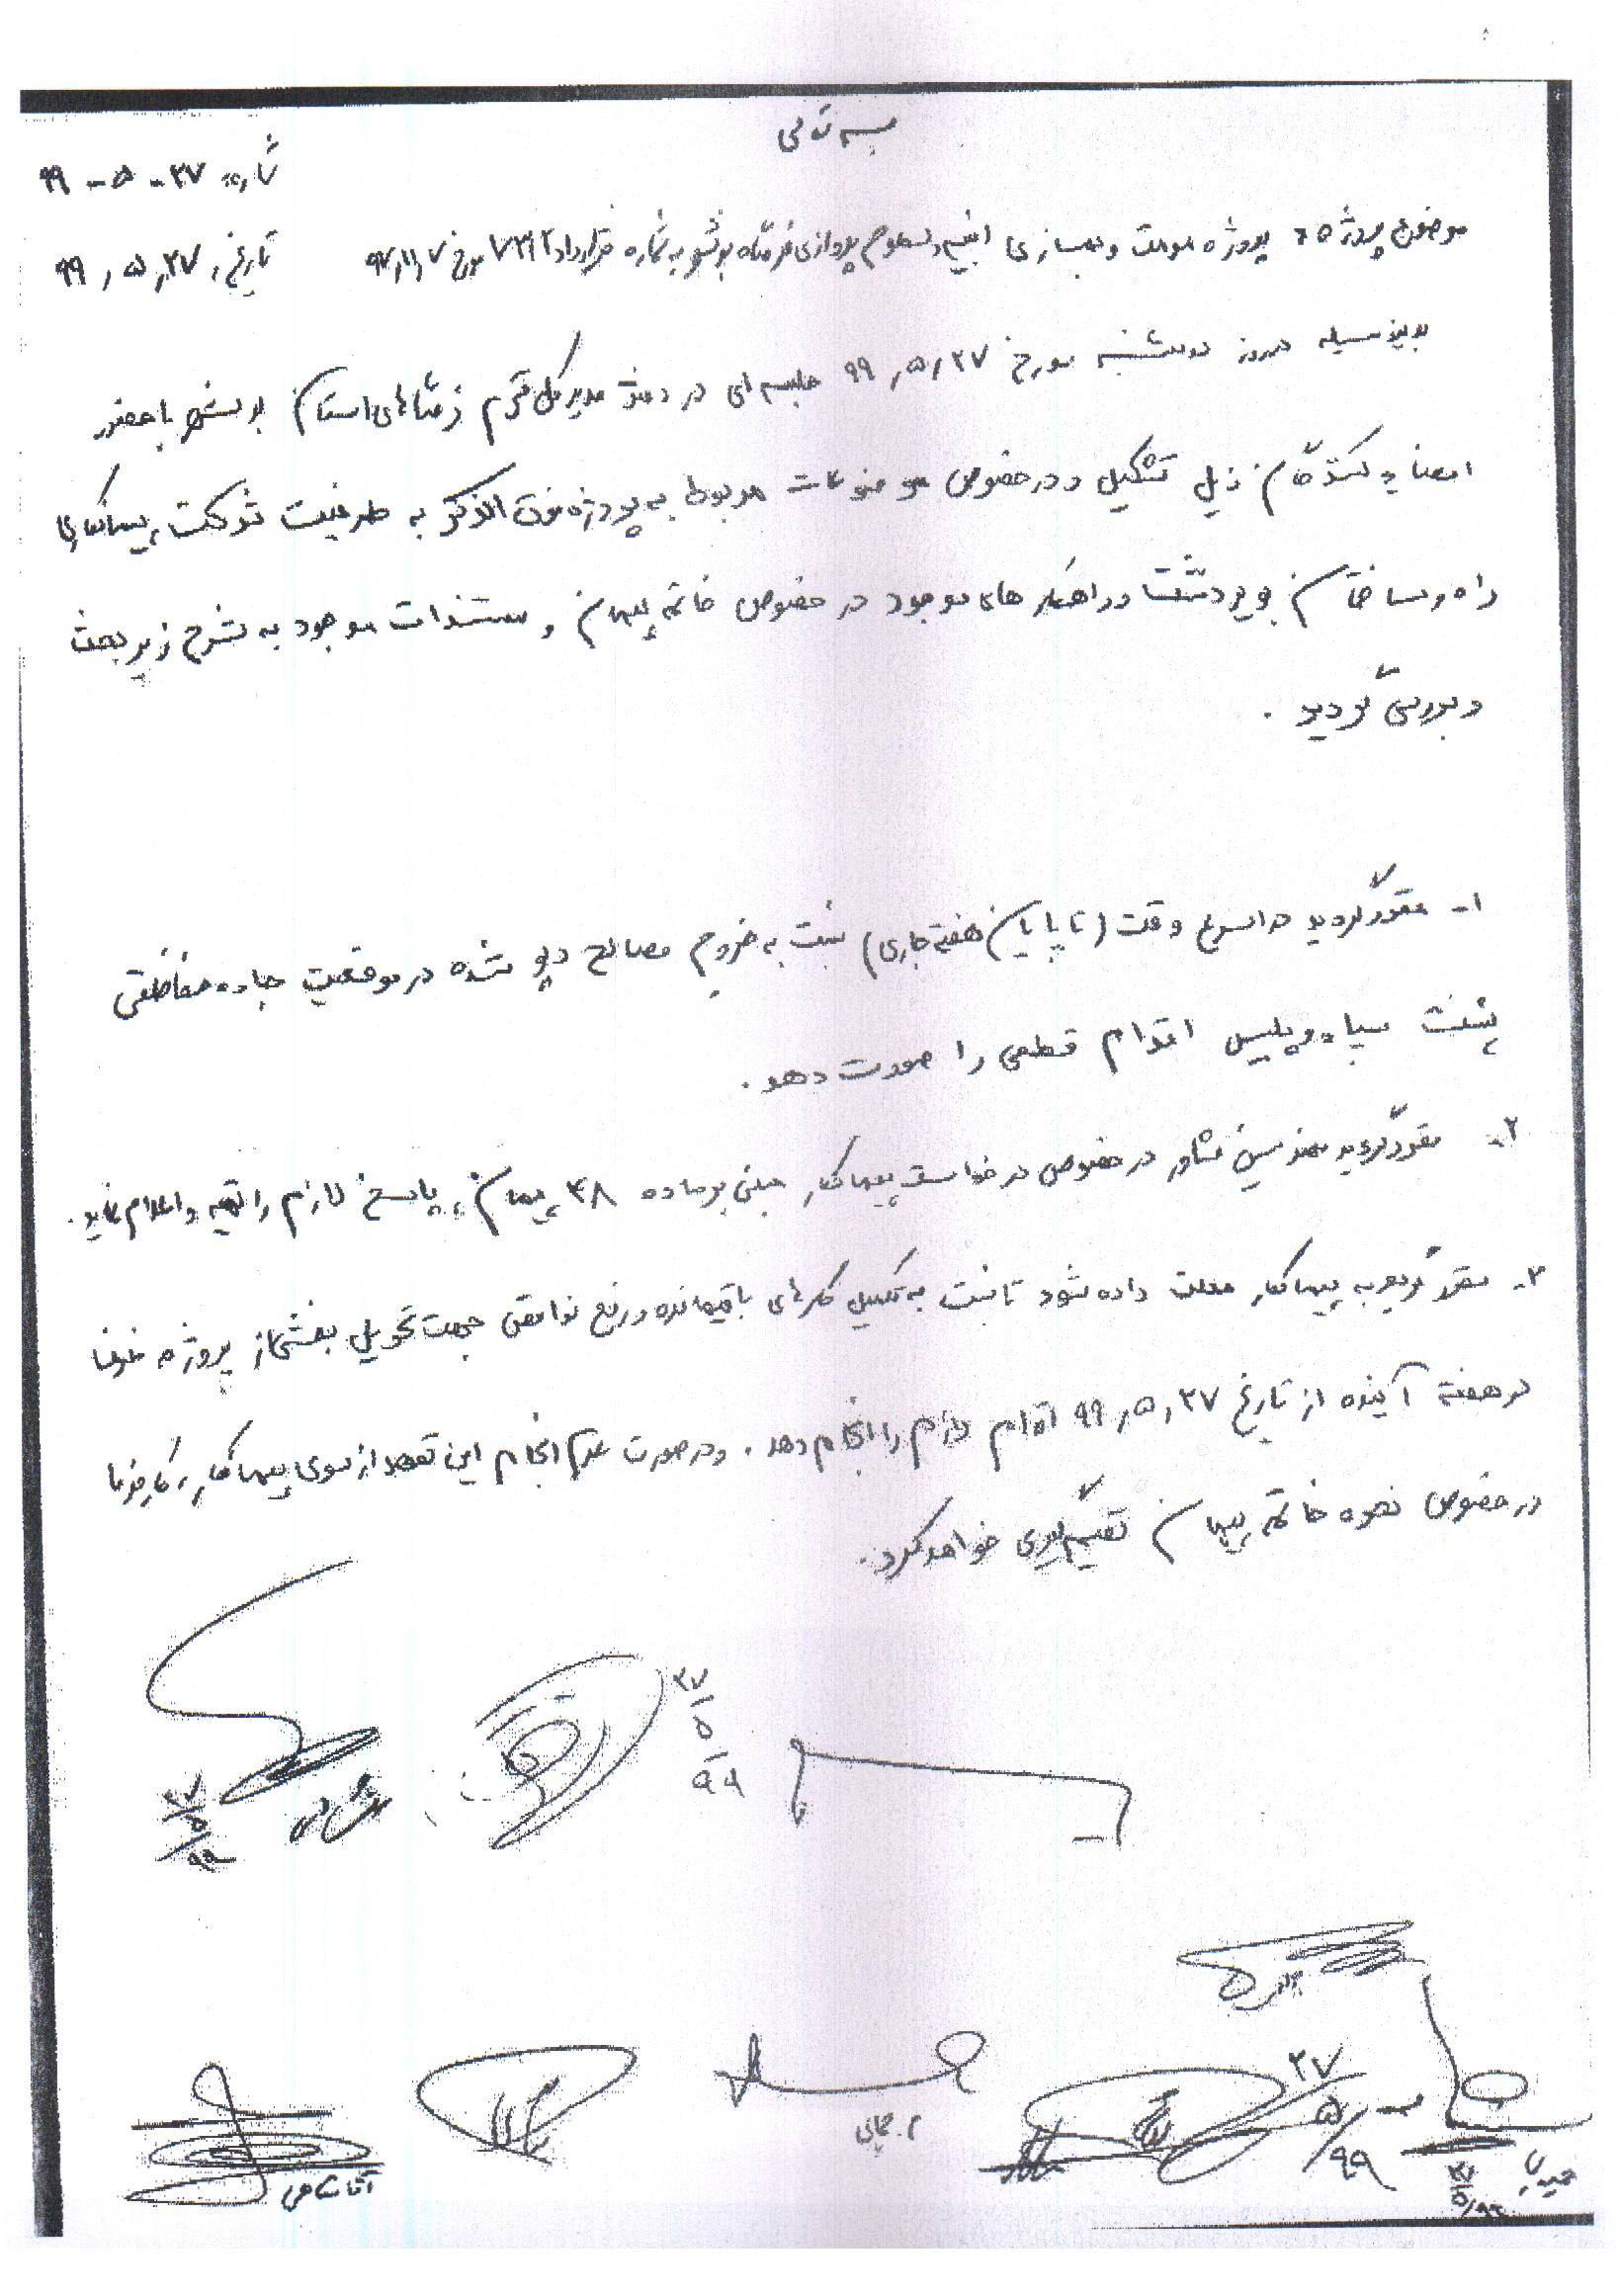 بسمه تعالی
شماره: ۲۷-۵-۹۹
موضوع پروژه: پروژه مرمت و بهسازی ابنیه و سطوح پروازی فرودگاه بوشهر به شماره قرارداد ۷۳۱۲ مورخ ۹۷,۱۱,۷
تاریخ: ۹۹,۵,۲۷
بدینوسیله امروز دوشنبه مورخ ۹۹,۵,۲۷ جلسه ای در دفتر مدیر کل محترم فرودگاههای استان بوشهر با حضور
امضاء کنندگان ذیل تشکیل و در خصوص موضوعات مربوط به پروژه فوق الذکر به طرفیت شرکت پیمانکاری
راه و ساختمان و راهکار های موجود در خصوص خاتمه پیمان و مستندات موجود به شرح زیر بحث
و بررسی گردید.
۱- مقرر گردید در اسرع وقت (تا پایان هفته جاری) نسبت به خروج مصالح دپو شده در موقعیت جاده حفاظتی
پشت سپاه و پلیس اقدام قطعی را صورت دهد.
۲- مقرر گردید مهندسین مشاور در خصوص درخواست پیمانکار مبنی بر ماده ۴۸ پیمان، پاسخ لازم را تهیه و اعلام نماید.
۳- مقرر گردید به پیمانکار مهلت داده شود تا نسبت به تکمیل کارهای باقیمانده و رفع نواقص جهت تحویل بخشی از پروژه
در هفته آینده از تاریخ ۹۹,۵,۲۷ اقدام لازم را انجام دهد. و در صورت عدم انجام این تعهد از سوی پیمانکار، کارفرما
در خصوص نحوه خاتمه پیمان تصمیم گیری خواهد کرد.
۲۷/۵/۹۹
۲۷/۵/۹۹
۲۷/۵/۹۹
۲۷/۵/۹۹